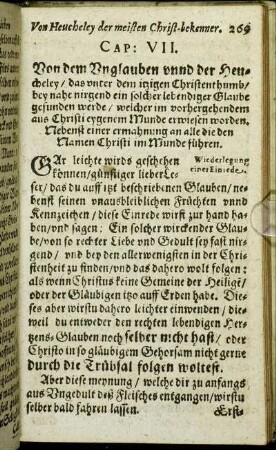 Von Heucheley der meisten Christ-bekenner. 269
CAP: VII.
Von dem Vnglauben vnnd der Heu-
cheley / das vnter dem itzigen Christenthumb /
bey nahe nirgend ein solcher lebendiger Glaube
gefunden werde / welcher im vorhergehendem
aus Christi eygenem Munde erwiesen worden.
Nebenst einer ermahnung an alle die den
Namen Christi im Munde führen.
GAr leichte wirds geschehen
können / günstiger lieber Le-
Wiederlegung
einer Einrede.
ser / das du auff itzt beschriebenen Glauben / ne-
benst seinen vnausbleiblichen Früchten vnnd
Kennzeichen / diese Einrede wirst zur hand ha-
ben / vnd sagen: Ein solcher wirckender Glau-
be / von so rechter Liebe vnd Gedult sey fast nir-
gend / vnd bey den allerwenigsten in der Chri-
stenheit zu finden / vnd das dahero wolt folgen:
als wenn Christus keine Gemeine der Heilige /
oder der Gläubigen itzo auff Erden habe. Die-
ses aber wirstu dahero leichter einwenden / die-
weil du entweder den rechten lebendigen Her-
tzens-Glauben noch selber nicht hast / oder
Christo in so gläubigem Gehorsam nicht gerne
durch die Trübsal folgen woltest.
Aber diese meynung / welche dir zu anfangs
aus Vngedult deß Fleisches entgangen / wirstu
selber bald fahren lassen.
Erst-